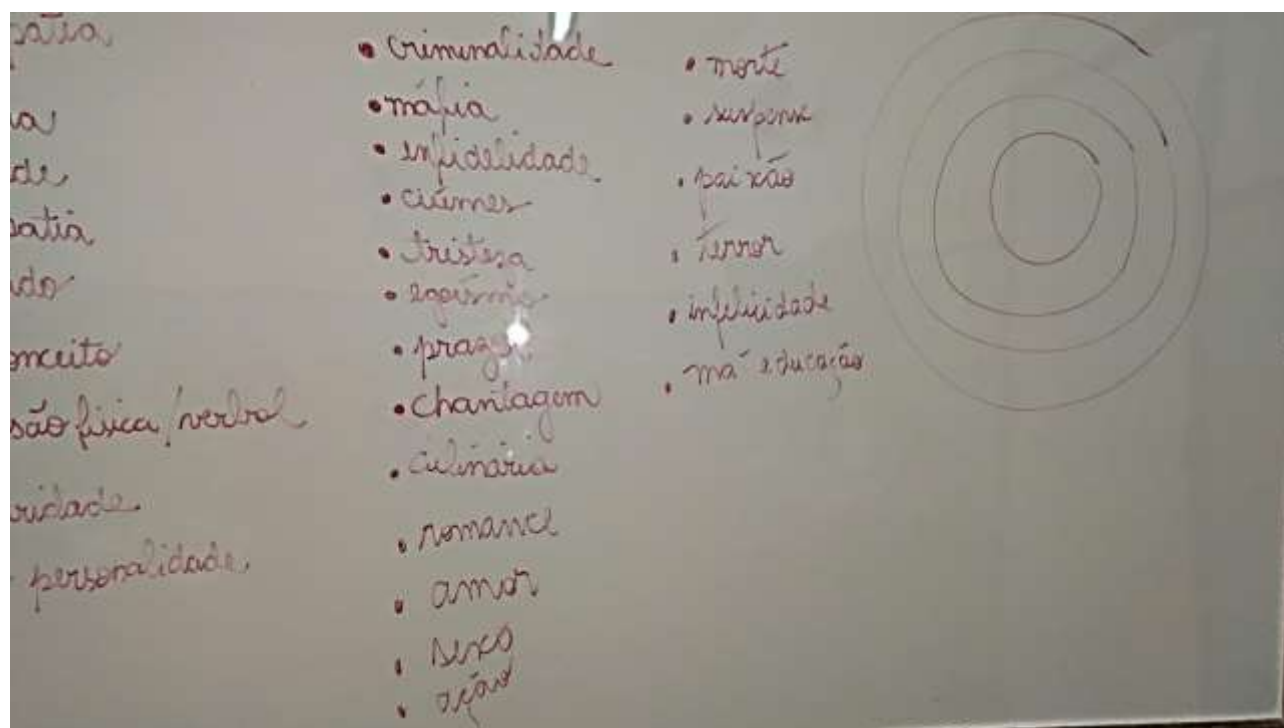 patia
a
de
patia
do
onceito
são física/verbal
ridade
personalidade
• criminalidade
• máfia
• infidelidade
• ciúmes
• tristeza
• egoísmo
• prazer
• chantagem
• culinária
• romance
• amor
• sexo
• ação
• morte
• suspense
• paixão
• terror
• infelicidade
• má educação